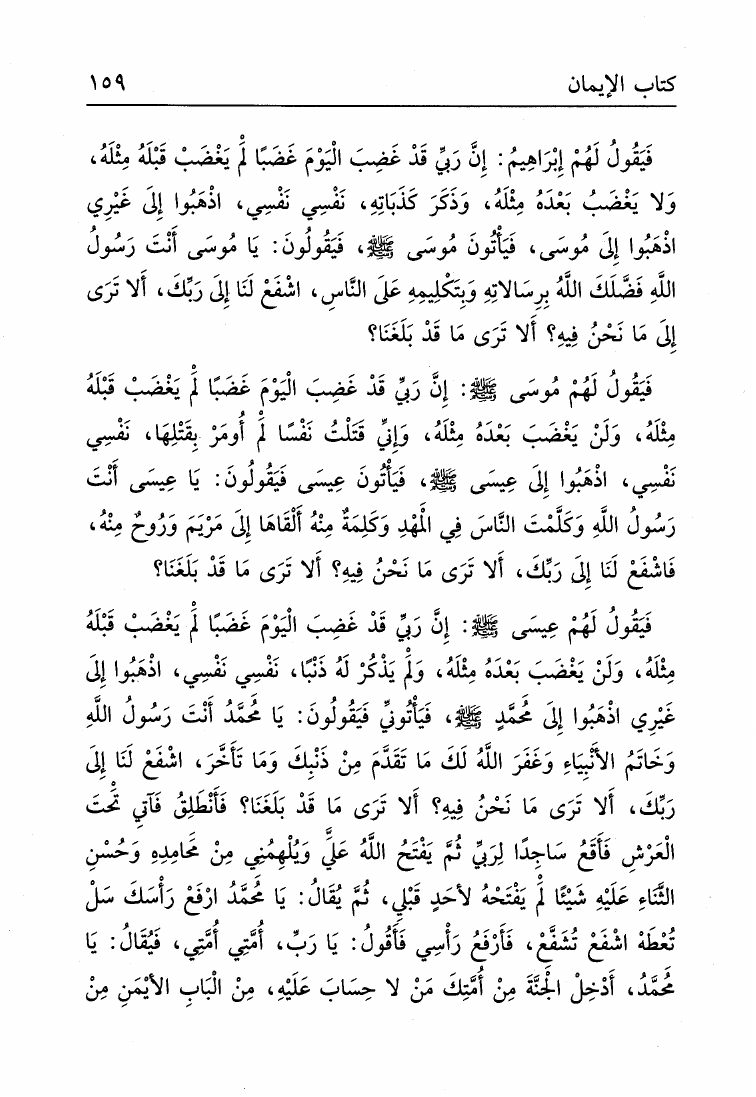 كتاب الإيمان ١٥٩
فَيَقُولُ لَهُمْ إِبْرَاهِيمُ: إِنَّ رَبِّي قَدْ غَضِبَ الْيَوْمَ غَضَبًا لَمْ يَغْضَبْ قَبْلَهُ مِثْلَهُ،
وَلا يَغْضَبُ بَعْدَهُ مِثْلَهُ، وَذَكَرَ كَذَبَاتِهِ، نَفْسِي نَفْسِي، اذْهَبُوا إِلَى غَيْرِي
اذْهَبُوا إِلَى مُوسَى، فَيَأْتُونَ مُوسَى ﷺ، فَيَقُولُونَ: يَا مُوسَى أَنْتَ رَسُولُ
اللَّهِ فَضَّلَكَ اللَّهُ بِرِسَالاتِهِ وَبِتَكْلِيمِهِ عَلَى النَّاسِ، اشْفَعْ لَنَا إِلَى رَبِّكَ، أَلا تَرَى
إِلَى مَا نَحْنُ فِيهِ؟ أَلا تَرَى مَا قَدْ بَلَغَنَا؟
فَيَقُولُ لَهُمْ مُوسَى ﷺ: إِنَّ رَبِّي قَدْ غَضِبَ الْيَوْمَ غَضَبًا لَمْ يَغْضَبْ قَبْلَهُ
مِثْلَهُ، وَلَنْ يَغْضَبَ بَعْدَهُ مِثْلَهُ، وَإِنِّي قَتَلْتُ نَفْسًا لَمْ أُومَرْ بِقَتْلِهَا، نَفْسِي
نَفْسِي، اذْهَبُوا إِلَى عِيسَى ﷺ، فَيَأْتُونَ عِيسَى فَيَقُولُونَ: يَا عِيسَى أَنْتَ
رَسُولُ اللَّهِ وَكَلَّمْتَ النَّاسَ فِي الْمَهْدِ وَكَلِمَةٌ مِنْهُ أَلْقَاهَا إِلَى مَرْيَمَ وَرُوحٌ مِنْهُ،
فَاشْفَعْ لَنَا إِلَى رَبِّكَ، أَلا تَرَى مَا نَحْنُ فِيهِ؟ أَلا تَرَى مَا قَدْ بَلَغَنَا؟
فَيَقُولُ لَهُمْ عِيسَى ﷺ: إِنَّ رَبِّي قَدْ غَضِبَ الْيَوْمَ غَضَبًا لَمْ يَغْضَبْ قَبْلَهُ
مِثْلَهُ، وَلَنْ يَغْضَبَ بَعْدَهُ مِثْلَهُ، وَلَمْ يَذْكُرْ لَهُ ذَنْبًا، نَفْسِي نَفْسِي، اذْهَبُوا إِلَى
غَيْرِي اذْهَبُوا إِلَى مُحَمَّدٍ ﷺ، فَيَأْتُونِّي فَيَقُولُونَ: يَا مُحَمَّدُ أَنْتَ رَسُولُ اللَّهِ
وَخَاتَمُ الأَنْبِيَاءِ وَغَفَرَ اللَّهُ لَكَ مَا تَقَدَّمَ مِنْ ذَنْبِكَ وَمَا تَأَخَّرَ، اشْفَعْ لَنَا إِلَى
رَبِّكَ، أَلا تَرَى مَا نَحْنُ فِيهِ؟ أَلا تَرَى مَا قَدْ بَلَغَنَا؟ فَأَنْطَلِقُ فَآتِي تَحْتَ
الْعَرْشِ فَأَقَعُ سَاجِدًا لِرَبِّي ثُمَّ يَفْتَحُ اللَّهُ عَلَيَّ وَيُلْهِمُنِي مِنْ مَحَامِدِهِ وَحُسْنِ
الثَّنَاءِ عَلَيْهِ شَيْئًا لَمْ يَفْتَحْهُ لأَحَدٍ قَبْلِي، ثُمَّ يُقَالُ: يَا مُحَمَّدُ ارْفَعْ رَأْسَكَ سَلْ
تُعْطَهْ اشْفَعْ تُشَفَّعْ، فَأَرْفَعُ رَأْسِي فَأَقُولُ: يَا رَبِّ، أُمَّتِي أُمَّتِي، فَيُقَالُ: يَا
مُحَمَّدُ، أَدْخِلْ الْجَنَّةَ مِنْ أُمَّتِكَ مَنْ لا حِسَابَ عَلَيْهِ، مِنْ الْبَابِ الأَيْمَنِ مِنْ